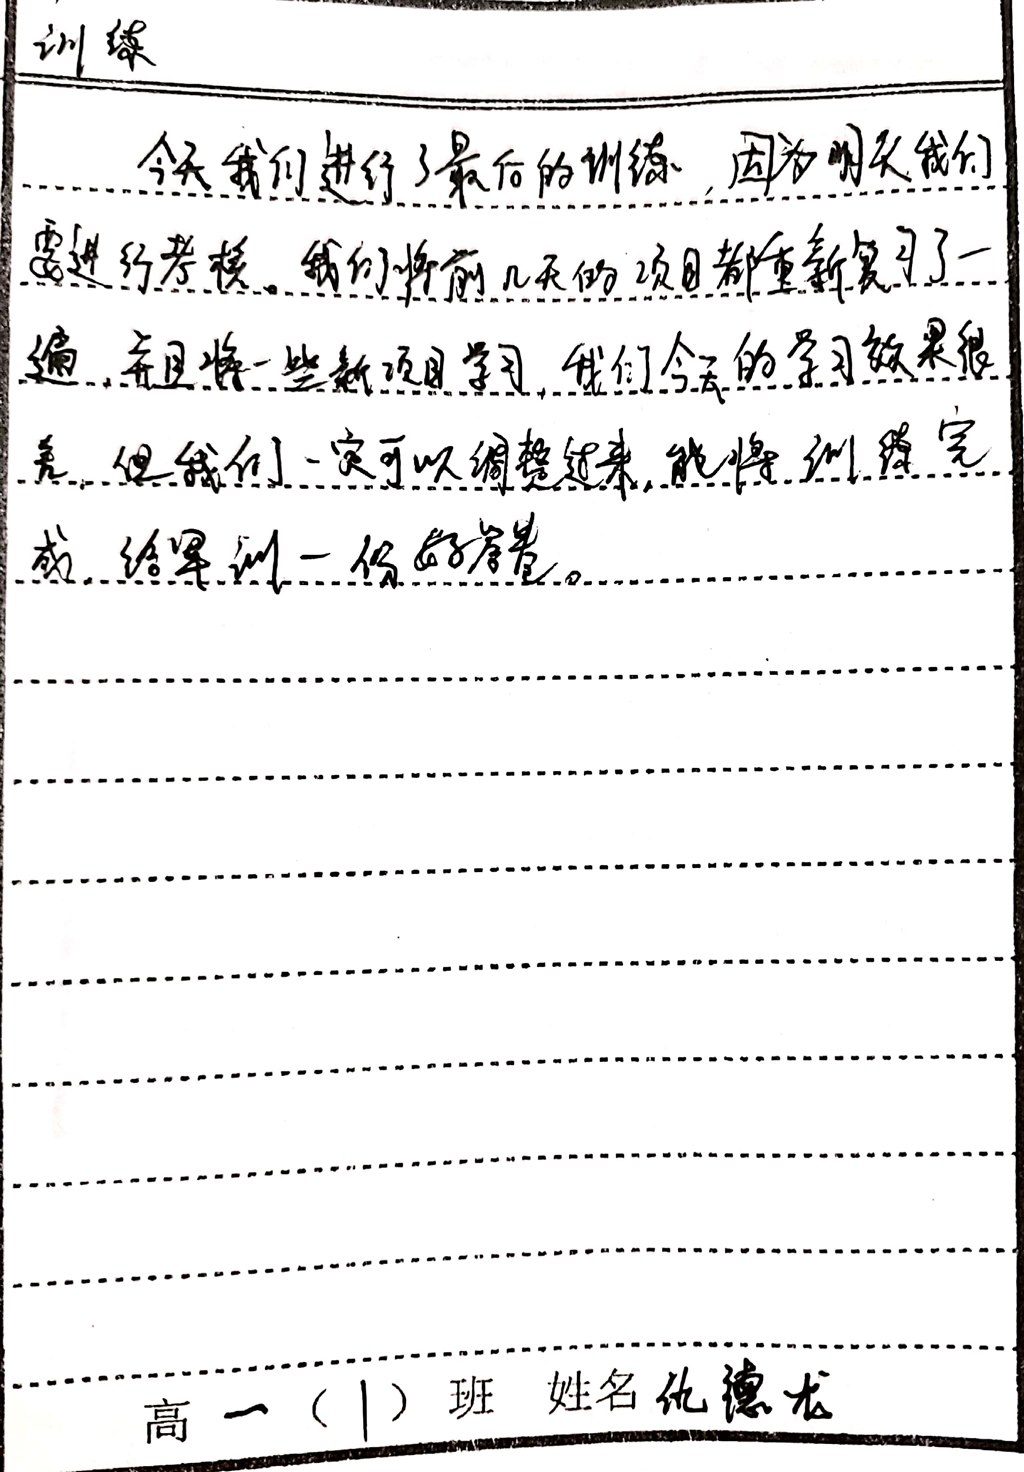 训练
今天我们进行了最后的训练，因为明天我们
要进行考核。我们将前几天的项目都重新复习了一
遍，并且将一些新项目学习，我们今天的学习效果很
差，但我们一定可以调整过来，能将训练完
成，给军训一份好答卷。
高一（1）班 姓名仇德龙